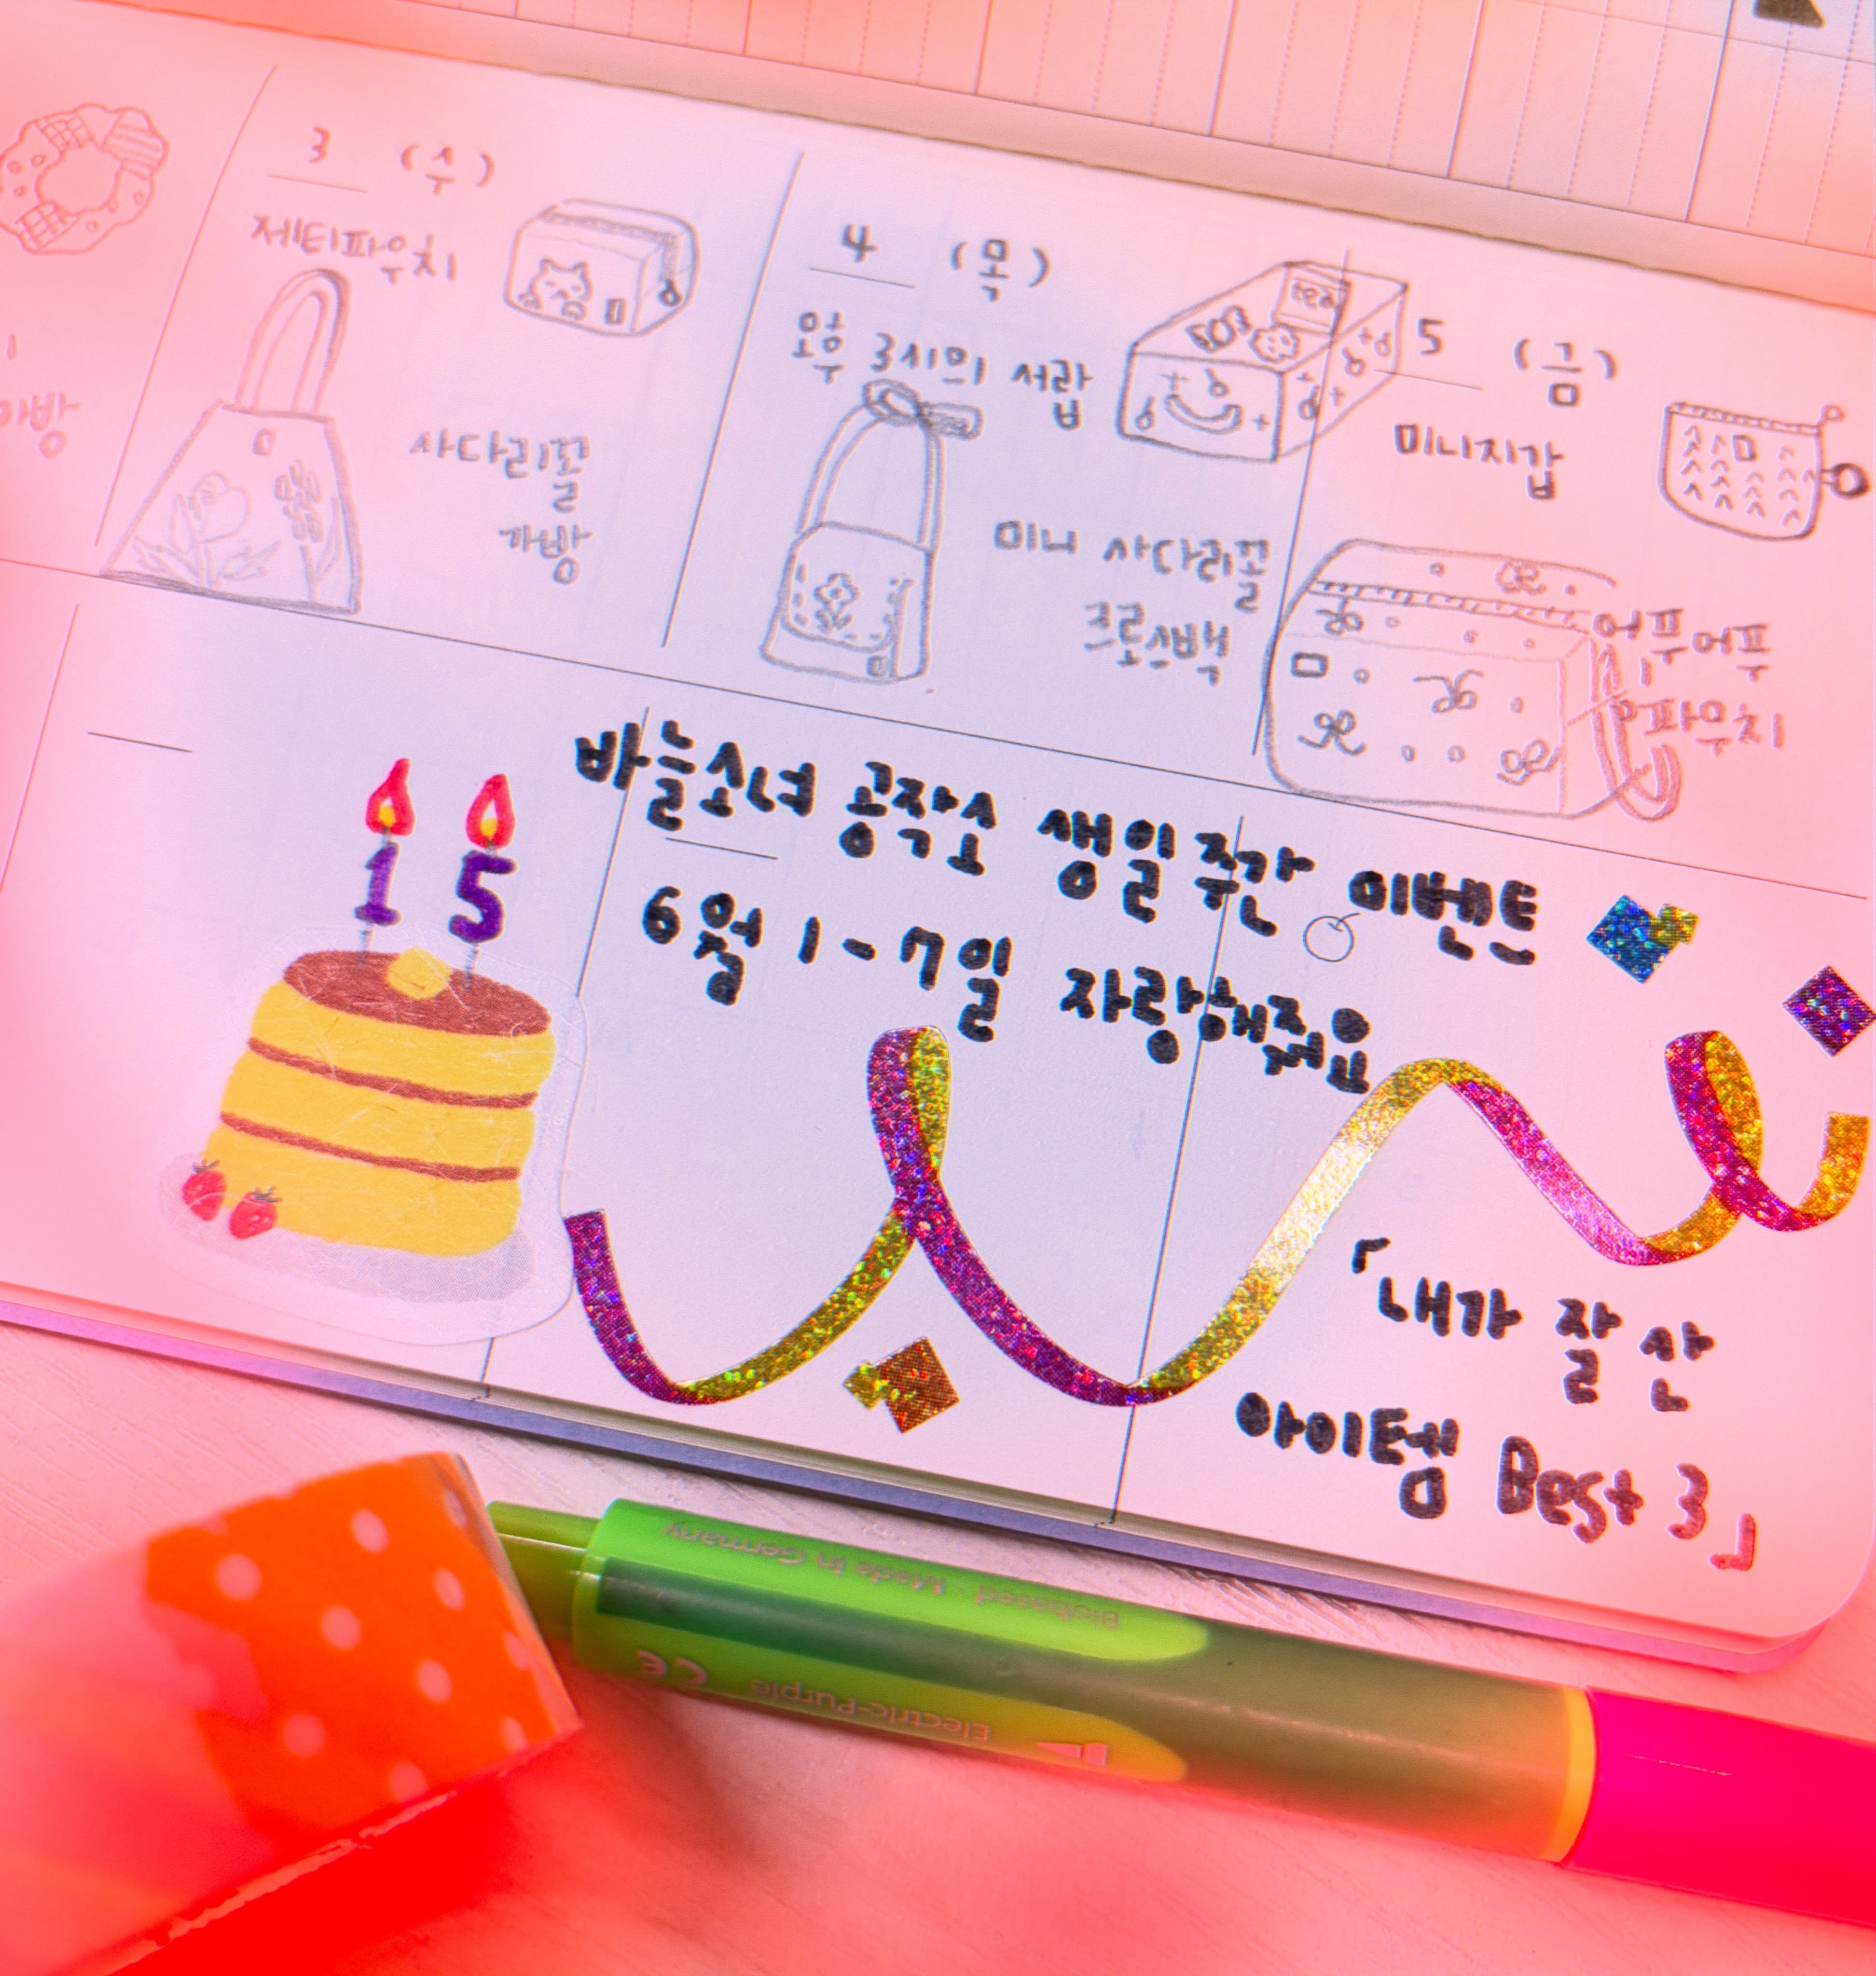 3 (수)
제티파우치
사다리꼴
가방
4 (목)
오후 3시의 서랍
tea
미니 사다리꼴
크로스백
5 (금)
미니지갑
어푸어푸
파우치
15
바늘소녀 공작소 생일주간 이벤트
6월 1-7일 자랑해줘요
「내가 잘 산
아이템 Best 3」
Biobased · Made In Germany
CE Electric-Purple